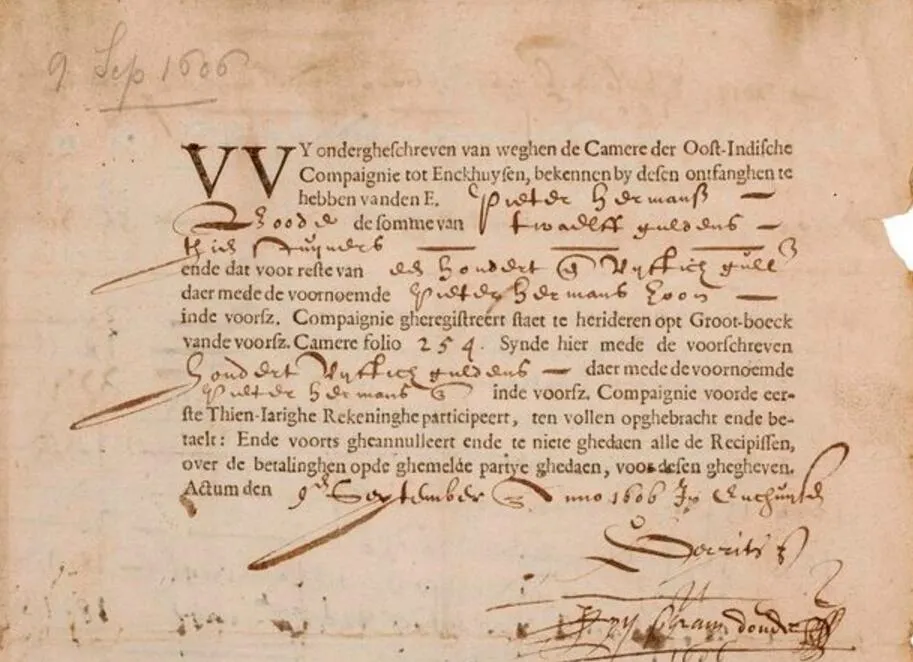 9 Sep 1606
VVY onderghescreven van weghen de Camere der Oost-Indische
Compagnie tot Enckhuysen, bekennen by desen ontfanghen te
hebben vanden E. Pieter Hermansz
de somme van twaelff guldens
thien stuyvers
ende dat voor reste van een hondert vyftich gull
daer mede de voornoemde Pieter Hermans zoon
inde voorsz. Compagnie gheregistreert staet te herideren opt Groot-boeck
vande voorsz. Camere folio 254. Synde hier mede de voorschreven
hondert vyftich guldens daer mede de voornoemde
Pieter Hermans inde voorsz. Compagnie voorde eer-
ste Thien-Iarighe Rekeninghe participeert, ten vollen opghebracht ende be-
taelt: Ende voorts gheannulleert ende te niete ghedaen alle de Recipissen,
over de betalinghen opde ghemelde partye ghedaen, voor desen ghegheven.
Actum den 9en September Anno 1606